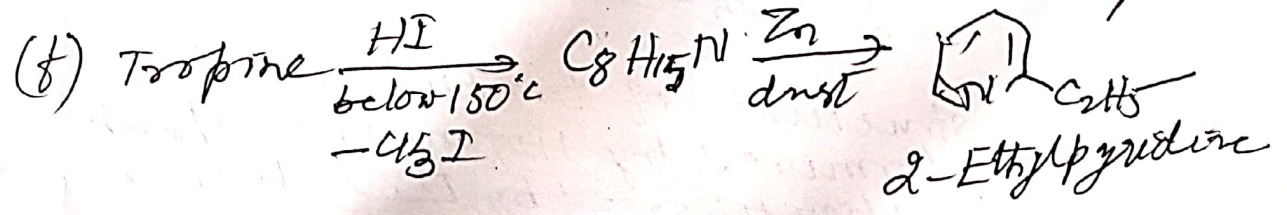 (f) Tropine HI below 150°C -CH3I → C8H15N Zn dust → N C2H5
2-Ethylpyridine